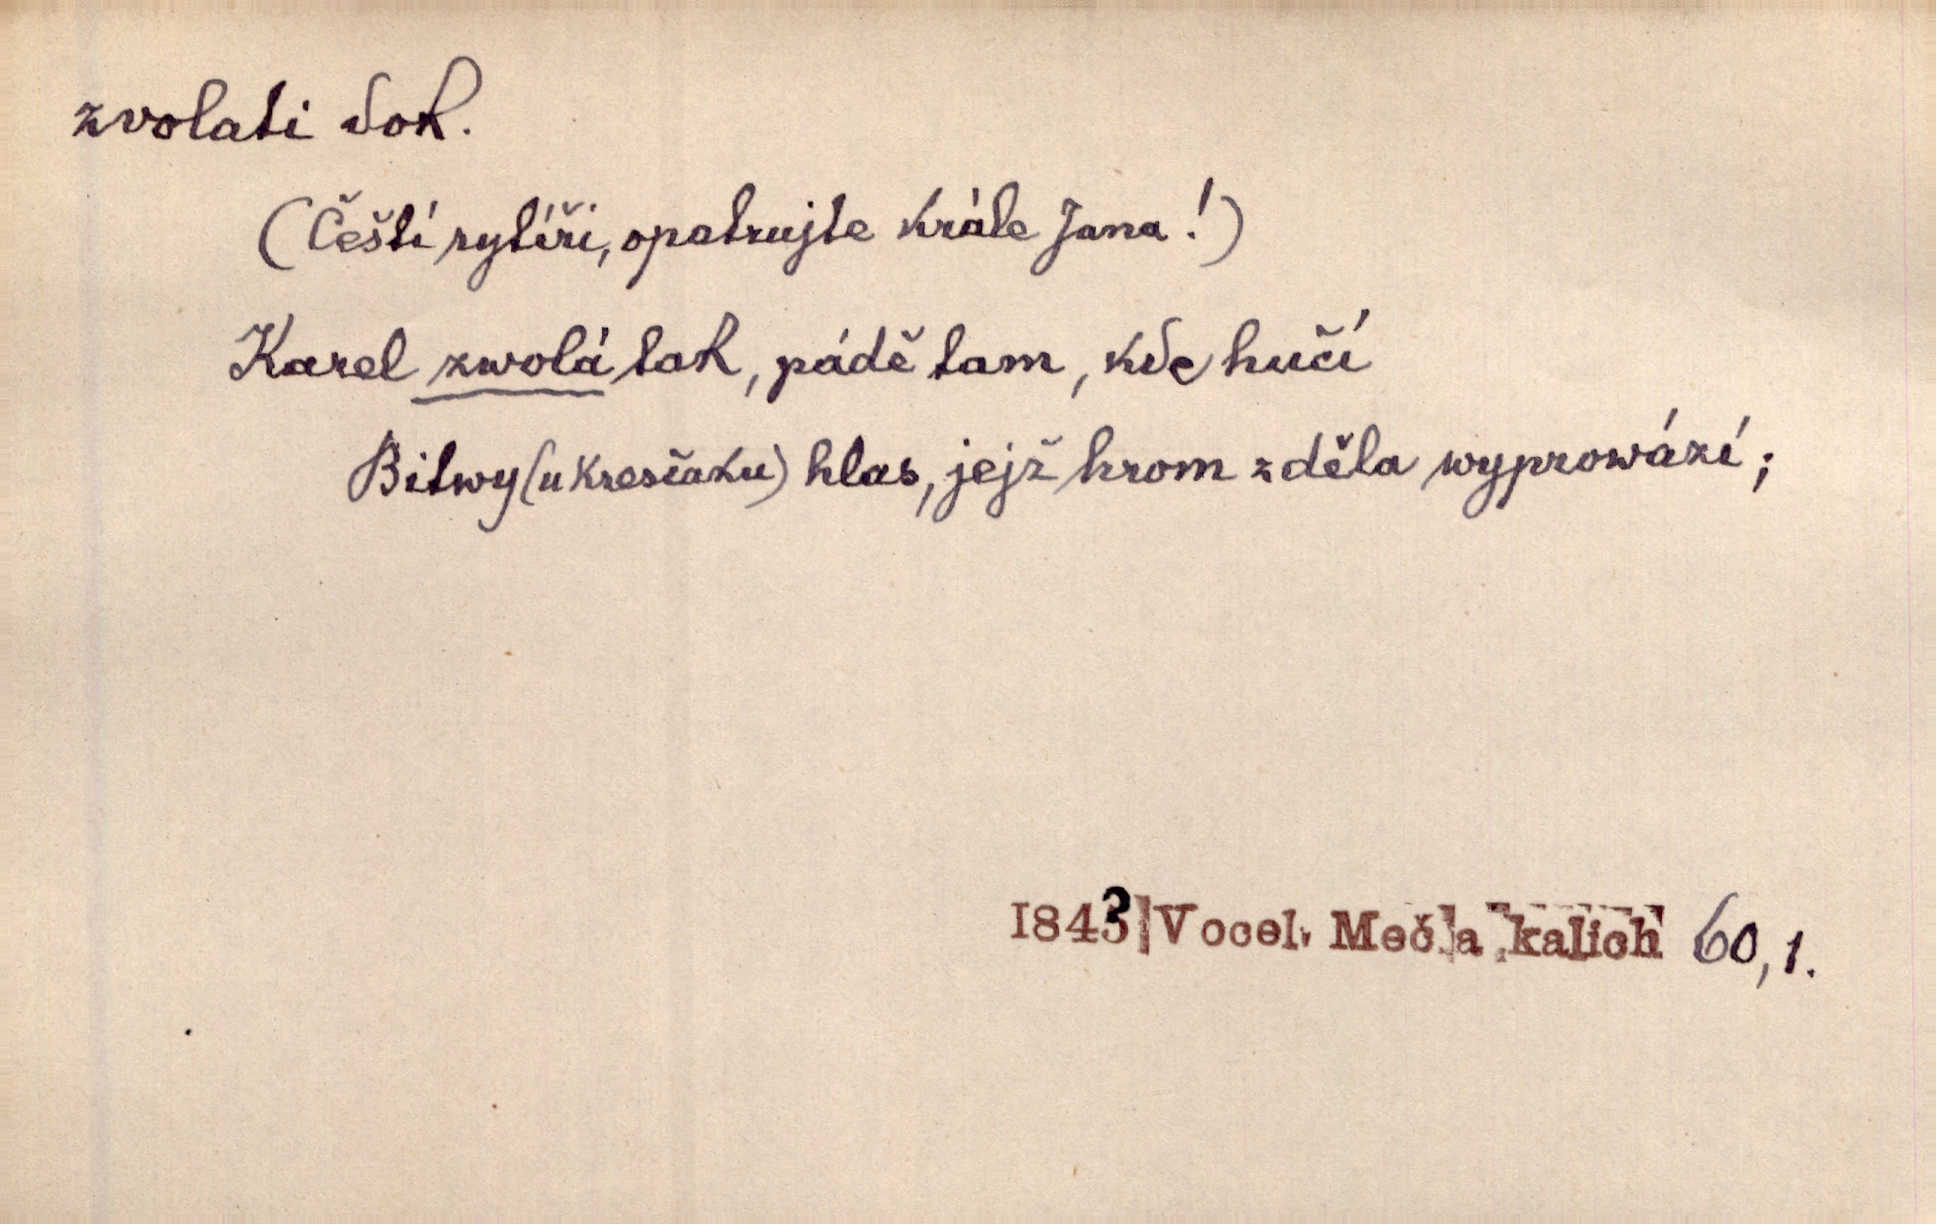 zvolati dok.
(Čeští rytíři, opatrujte krále Jana!)
Karel zwolá tak, pádě tam, kde hučí
Bitwy (u Kresčaku) hlas, jejž hrom z děla wyprowází;
1843 Vocel. Meč a kalich 60, 1.